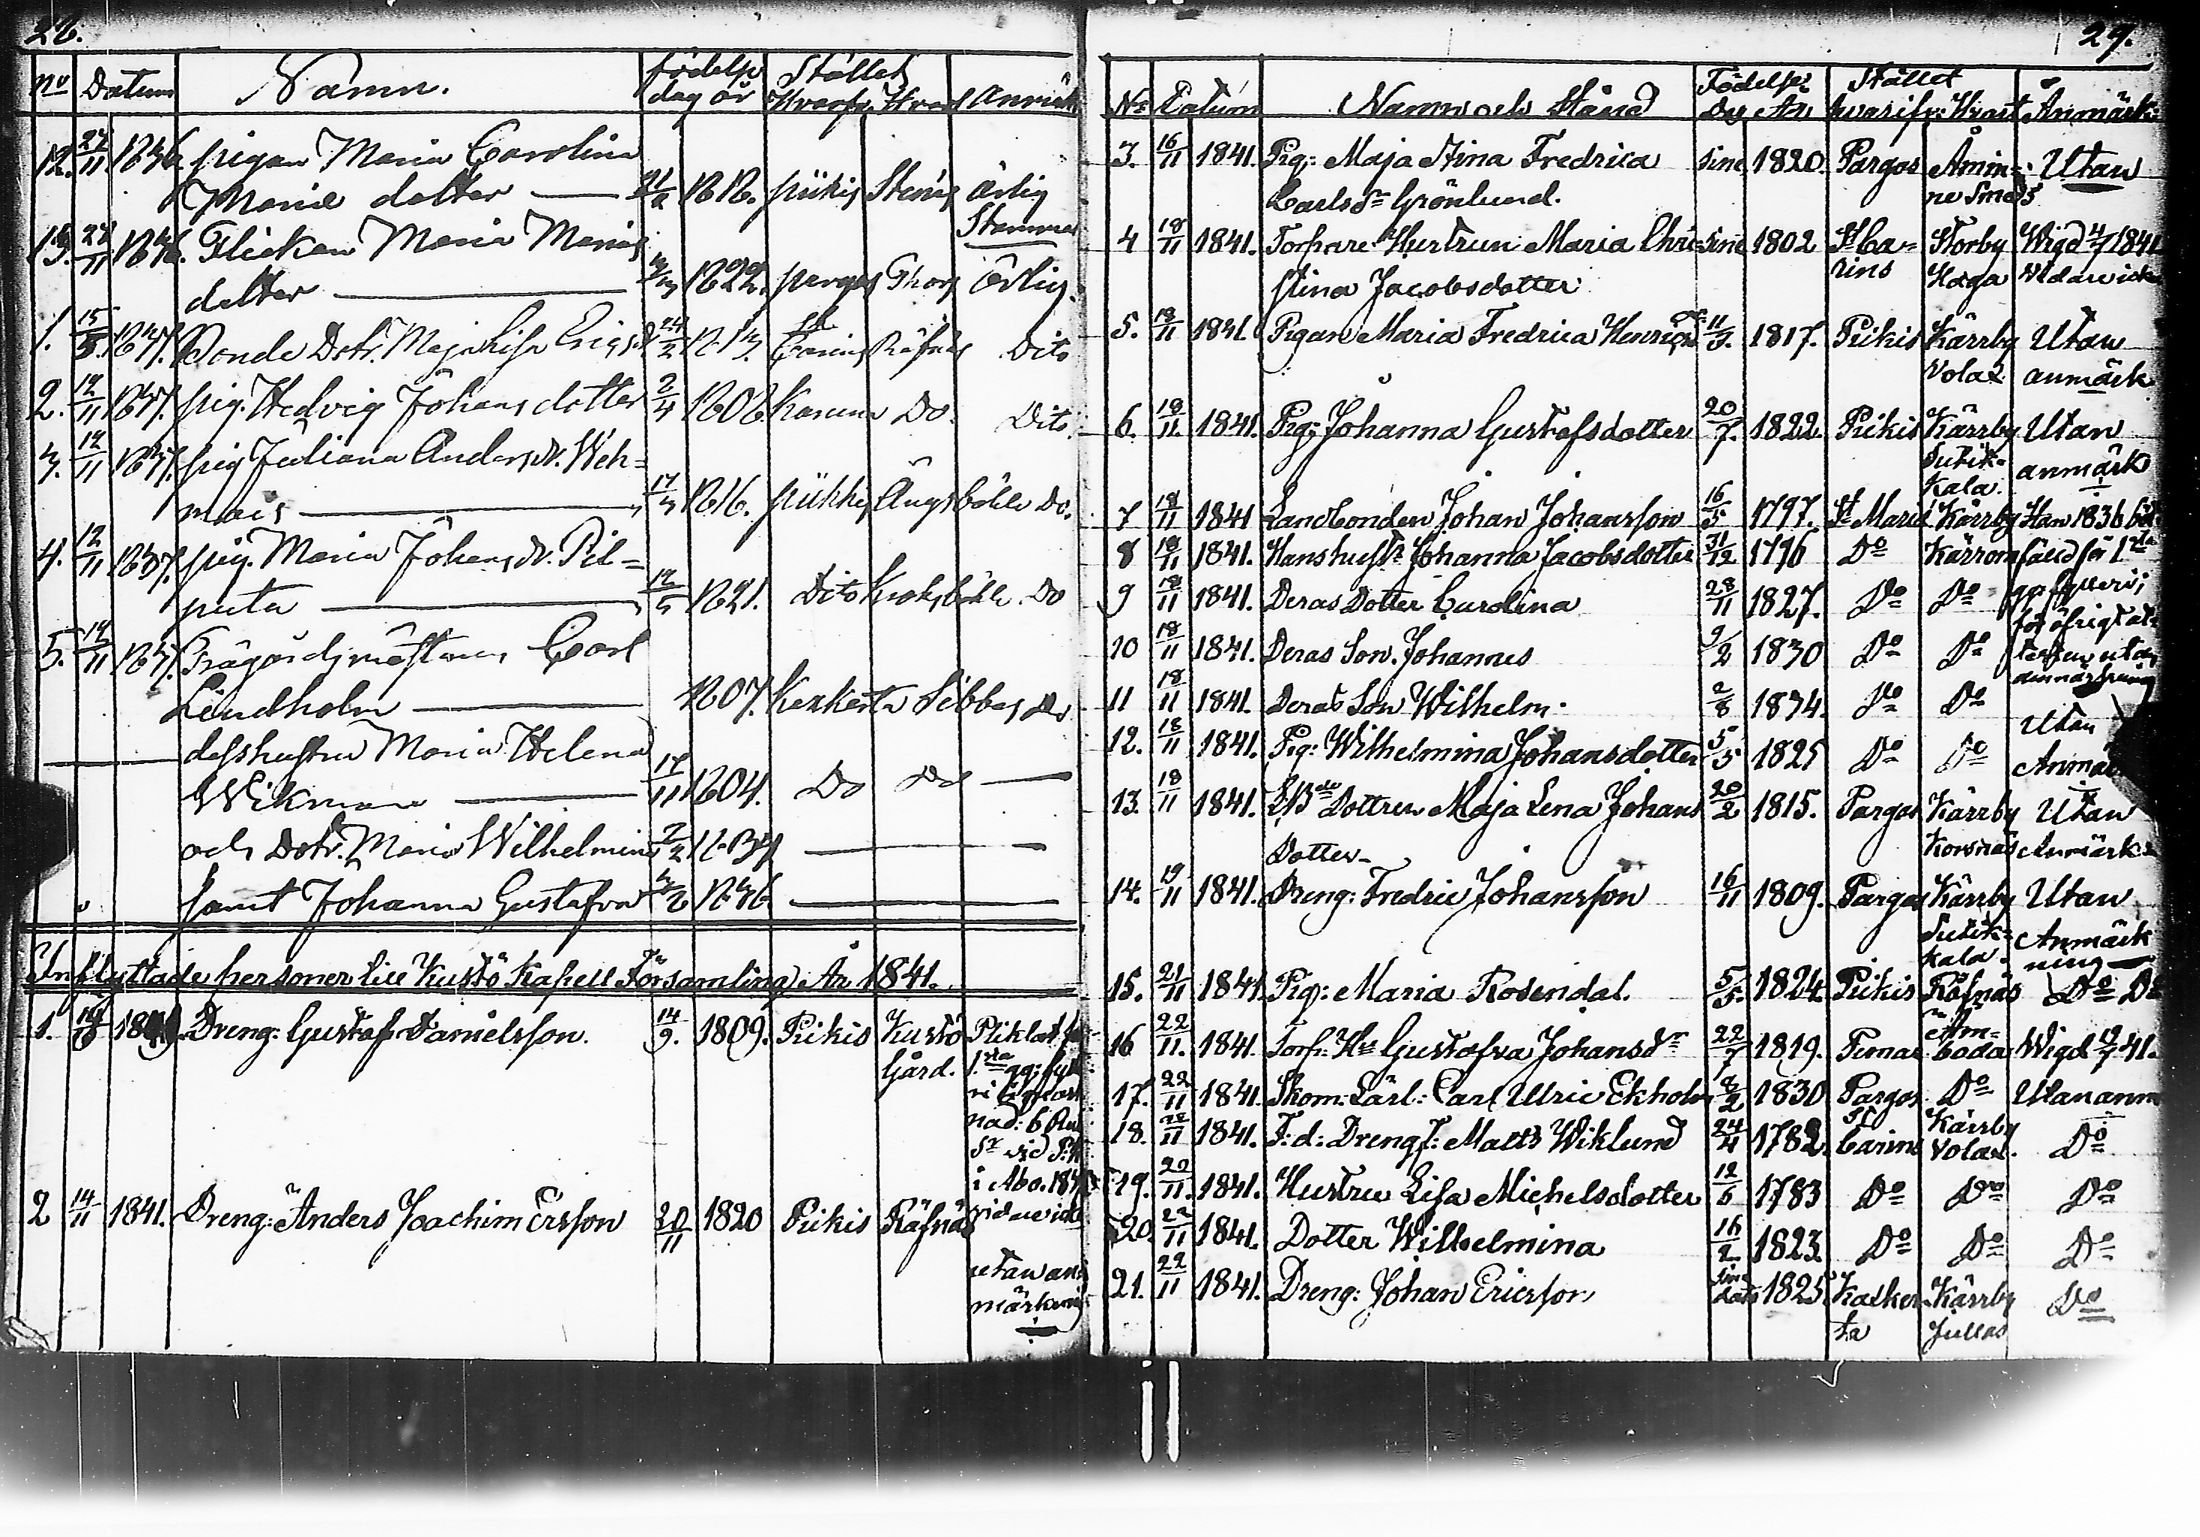 26.
no Datum Namn. födelse dag år Stället Hvarfr. Hvart Anmärk
12. 27/11 1836. pigan Maria Carolina
Marie dotter 1818. pükis Stenis ärlig
Stammar
13. 27/11 1836. Flickan Maria Marias
dotter 1822. pargas Ärlig.
1. 1837. Bonde Dotr. Maja Lisa Ersd. St Carins Räfnäs Dito
2. 12/11 1837. pig. Hedvig Johans dotter 2/4 1808 Karuna Do. Dito
3. 12/11 1837. pig Juliana Anders dr. Weh=
mais 1816. pükkis Ängsböhle Do.
4. 12/11 1837. pig. Maria Johans dr. Pil=
puta 1821. Dito Kroksböhle Do
5. 12/11 1837. Trägårdsmästaren Carl
Lindholm 1807. Keskerta Sibbas Do
desshustru Maria Helena
Wikman 1804. Do Do
och Dotr. Maria Wilhelmina 1834
samt Johanna Gustafva 1836.
Inflyttade personer till Kustö Kapell Församling År 1841.
1. Dreng: Gustaf Danielsson. 14/9. 1809. Pikis Kustö
Gård.
1sta gg: fylle
nad: 6 Rub
Sr vid
i Åbo. 
2 14/11 1841. Dreng: Anders Joachim Ersson 20/11 1820 Pikis Räfnäs vidare icke
utan an=
märkning
29.
No Datum Namn och Stånd Födelse Dag År Stället hvarifr: Hvart Anmärk:
3. 16/11 1841. Pig: Maja Stina Fredrica sine 1820. Pargas Åmin= Utan
Carls Dr Grönlund. ne Smeds
4 18/11 1841. Torpare Hustrun Maria Chri= sine 1802 St Ca= Storby Wigd 4/7 1841
stina Jacobsdotter rins Haga vidare icke
5. 18/11 1841 Pigan Maria Fredrica Henricsdr 11/3. 1817. Pikis Kärrby Utan
Volax anmärk
6. 18/11. 1841. Pig: Johanna Gustafsdotter 20/7. 1822 Pikis Kärrby Utan
Sutik= anmärk
kala.
7 18/11 1841 Landbonden Johan Johansson 16/5 1797. St Marie Kärrby Han 1836 böt
8 18/11 1841. Hans hustr Johanna Jacobsdotter 31/12 1796 Do Kärrom fäld för 1sta
9 18/11 1841. Deras Dotter Carolina 28/11 1827. Do Do gg fylleri;
för öfrigt at=
10 18/11 1841. Deras Son. Johannes 9/2 1830 Do Do testen utan
anmärkning
11 18/11 1841. Deras Son Wilhelm. 2/8 1834. Do Do
Utan
12. 18/11 1841. Pig: Wilhelmina Johansdotter 5/5 1825 Do Do Anmärk
13. 18/11 1841. Dottren Maja Lena Johans 20/2 1815. Pargas Kärrby Utan
Dotter Korsnäs Anmärk
14. 19/11 1841. Dreng: Fredric Johansson 16/11 1809. Pargas Kärrby Utan
Sutik= Anmärk
kala. ning
15. 21/11 1841 Pig: Maria Rosendal. 5/5. 1824. Pikis Räfnäs Do Do
16 22/11. 1841. Torp: Hu Gustafva Johansdr 22/7 1819. Pemar Åm=
boda Wigd 41.
17. 22/11 1841 Skom: Lärl: Carl Ulric Ekholm 8/2 1830 Pargas Do Utan anm
18. 22/11 1841. F: d: Dreng: Matts Wiklund 24/4 1782. St Carins Kärrby Volax. Do
19. 22/11. 1841. Hustru Lisa Michelsdotter 1783 Do Do Do
20. 22/11 1841. Dotter Wilhelmina 16/2. 1823. Do Do Do
21. 22/11 1841. Dreng: Johan Ericsson sine dato 1825 Kasker= Kärrby Do
ta Jullas